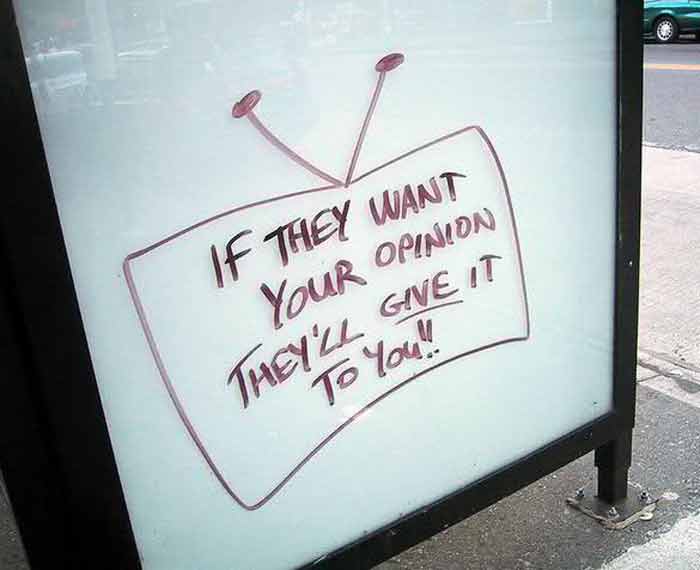 IF THEY WANT
YOUR OPINION
THEY'LL GIVE IT
TO YOU!!